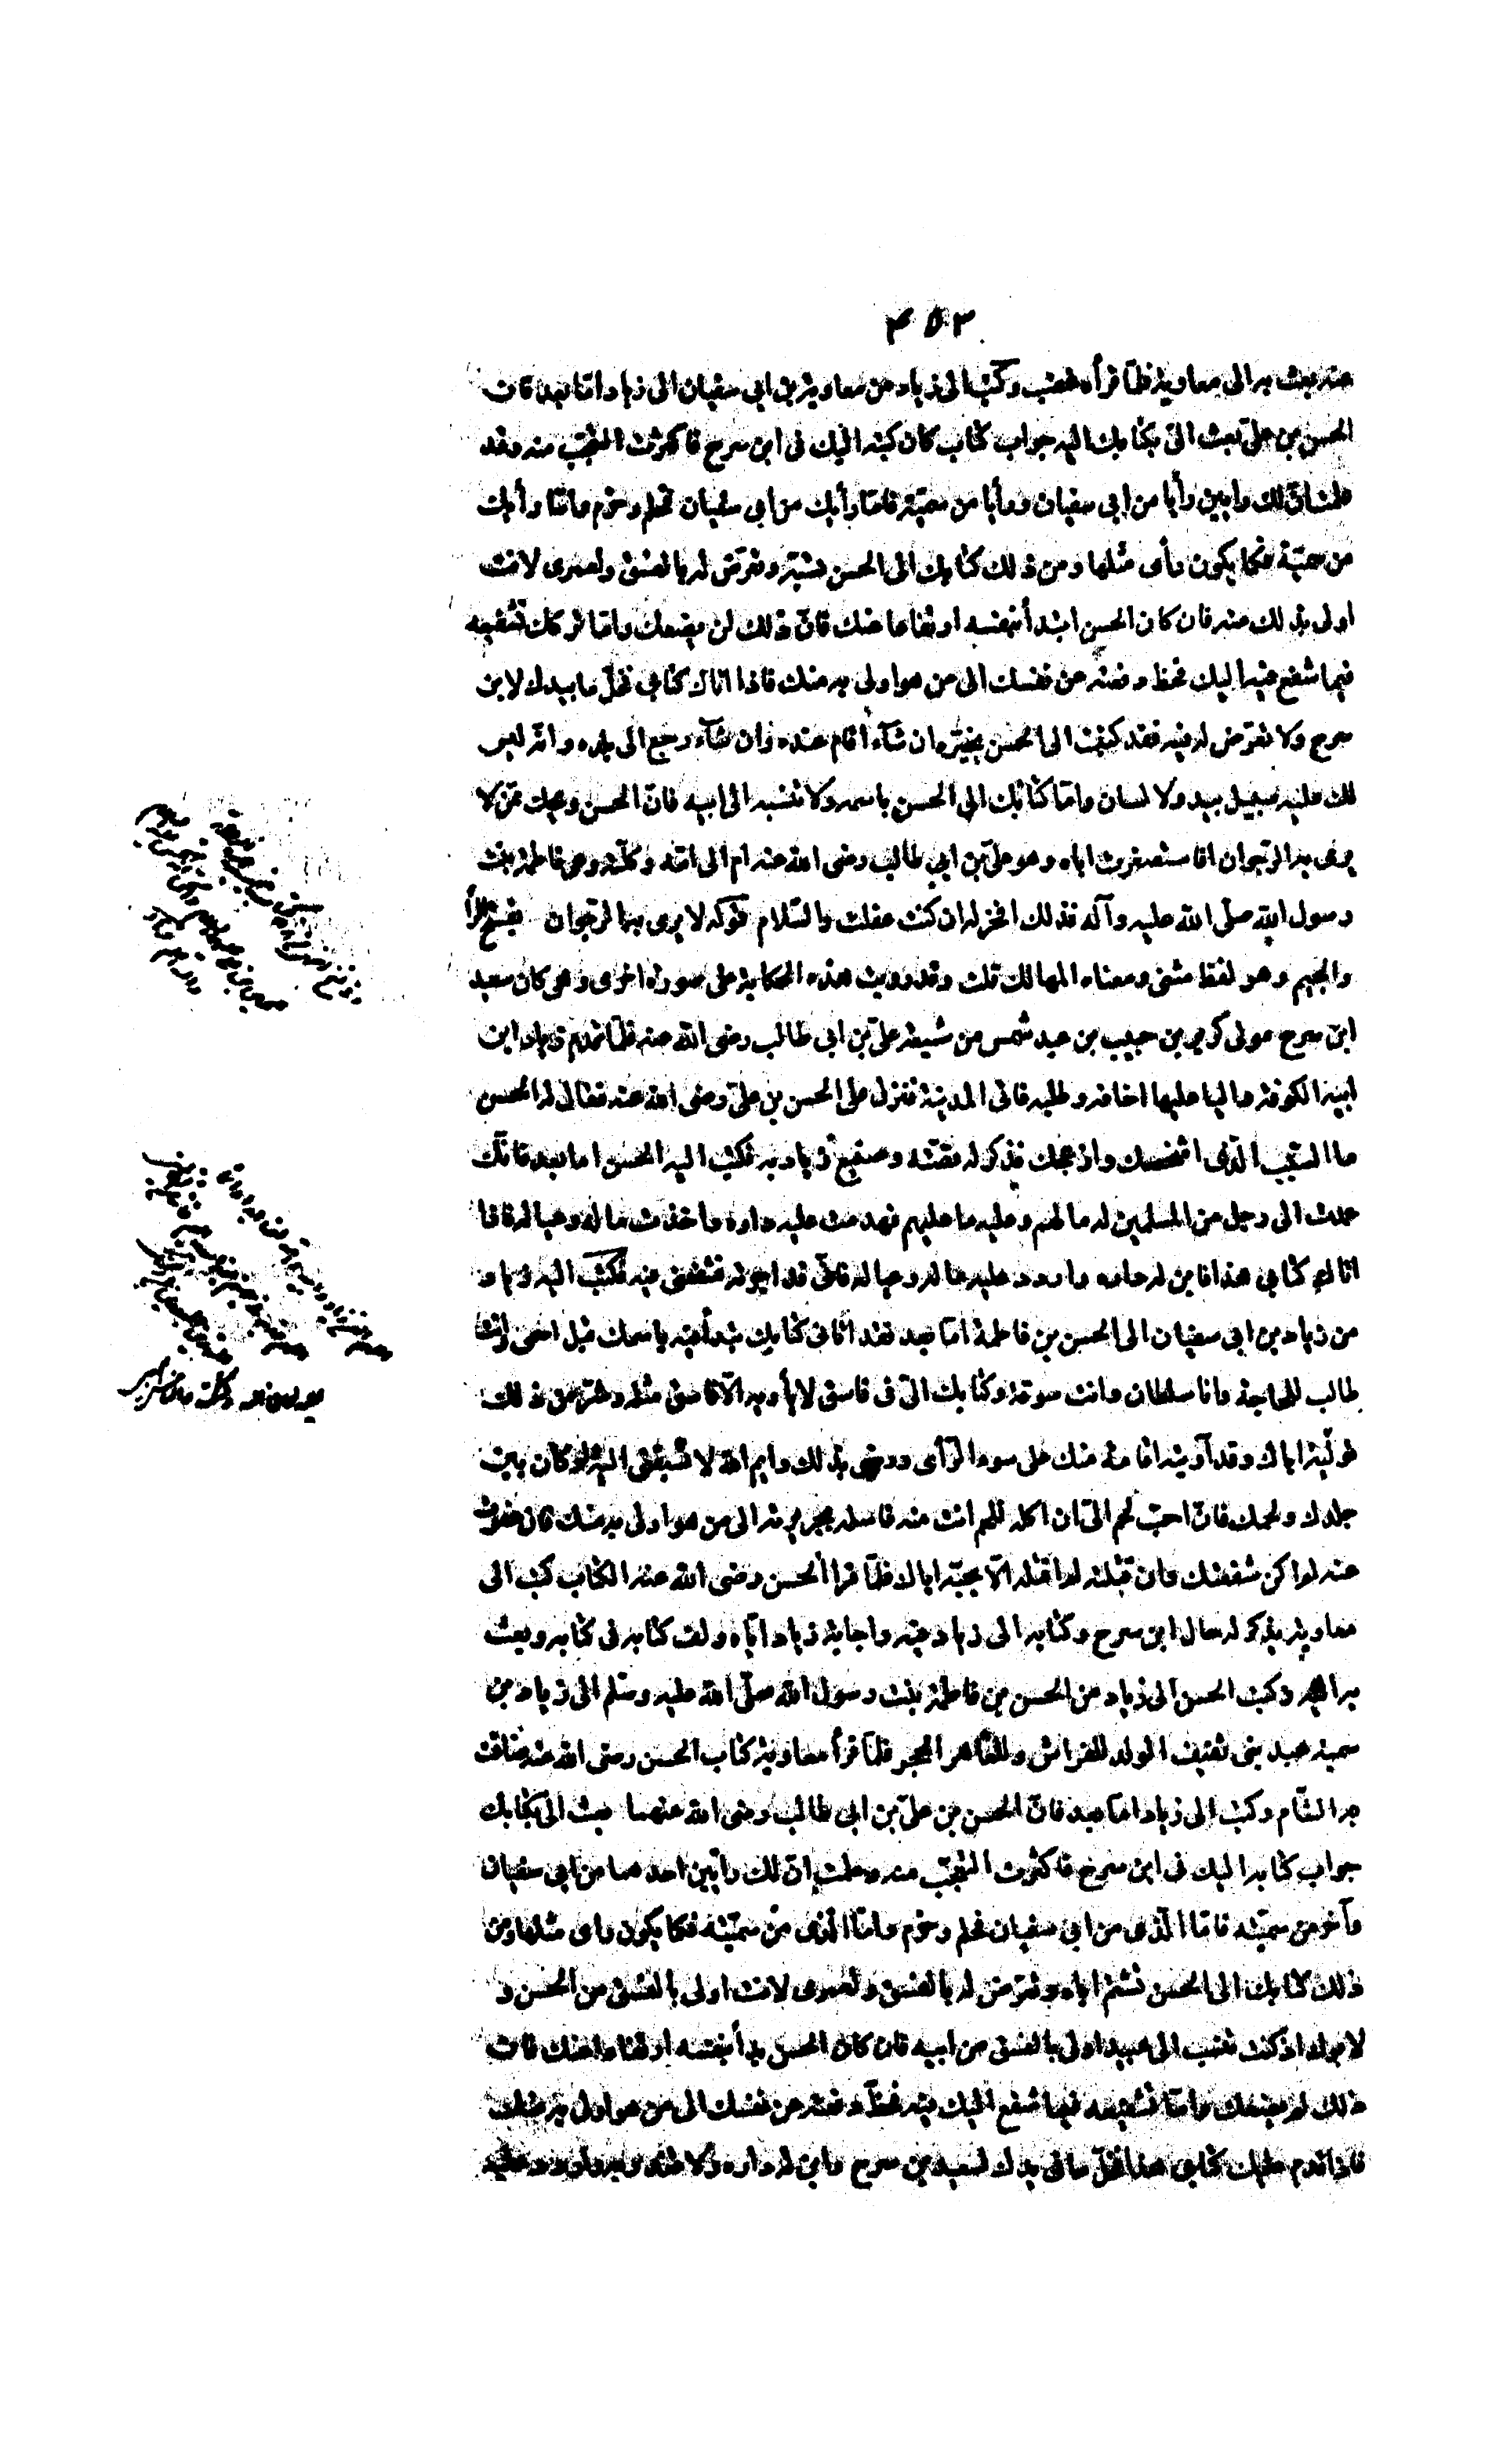 ٤٥٣
عنه بعث به الى معاوية فلما قرأه غضب وكتب الى زياد من معاوية بن ابى سفيان الى زياد اما بعد فان
الحسن بن على بعث الىّ بكتابك اليه جواب كتاب كان كتبه اليك فى ابن سرح فاكثرت التعجب منه وقد
علمت ان لك رايين رأيا من ابى سفيان ورأيا من سمية فاما رأيك من ابى سفيان فحلم وحزم واما رأيك
من سمية فكما يكون رأى مثلها ومن ذلك كتابك الى الحسن تشتمه وتعرّض له بالفسق ولعمرى لانت
اولى بذلك منه فان كان الحسن ابتدأ بنفسه ارتفاعا عنك فان ذلك لن يضعك واما تركك تشفيعه
فيما شفع فيه اليك فحظ دفعته عن نفسك الى من هو اولى به منك فاذا اتاك كتابى فخلّ ما بيدك لابن
سرح ولا تعرّض له فيه فقد كتبت الى الحسن يخيّره ان شآء اقام عنده وان شآء رجع الى بلده وانه ليس
لك عليه سبيل بيد ولا لسان واما كتابك الى الحسن باسمه ولا تنسبه الى ابيه فان الحسن ويحك ممن لا
يرمى به الرجوان افاستصغرت اباه وهو على بن ابى طالب رضى الله عنه ام الى امّه وكلته وهى فاطمة بنت
رسول الله صلّى الله عليه وآله فذلك افخر له ان كنت عقلت والسّلام قوله لا يرمى به الرجوان بفتح الرّا
والجيم وهو لفظ مثنى ومعناه المهالك قلت وقد رويت هذه الحكاية على صورة اخرى وهى كان سعيد
ابن سرح مولى كريز بن حبيب بن عبد شمس من شيعة على بن ابى طالب رضى الله عنه فلما قدم زياد ابن
ابيه الكوفة واليا عليها اخافه وطلبه فاتى المدينة فنزل على الحسن بن على رضى الله عنه فقال له الحسن
ما السّبب الّذى اشخصك وازعجك فذكر له قصّته وصنيع زياد به فكتب اليه الحسن اما بعد فانّك
عمدت الى رجل من المسلمين له ما لهم وعليه ما عليهم فهدمت عليه داره واخذت ماله وعياله فاذا
اتاك كتابى هذا فابن له داره واردد عليه ماله وعياله فانّى قد اجرته فشفّعنى فيه فكتب اليه زياد
من زياد بن ابى سفيان الى الحسن بن فاطمة امّا بعد فقد اتانى كتابك تبدأ فيه باسمك قبل اسمى وانت
طالب للحاجة وانا سلطان وانت سوقة وكتابك الىّ فى فاسق لا يأويه الّا فاسق مثله وشرّ من ذلك
تولّيه اياك وقد آويته اقامة منك على سوء الرّأى ورضى بذلك وايم الله لا تسبقنى اليه ولو كان بين
جلدك ولحمك فانّ احبّ لحم الىّ ان اكله للحم انت منه فاسلمه بجريرته الى من هو اولى به منك فان عفوت
عنه لم اكن شفعتك وان قتلته لم اقتله الّا بحبّه اياك فلمّا قرا الحسن رضى الله عنه الكتاب كتب الى
معاوية يذكر له حال ابن سرح وكتابه الى زياد فيه واجابة زياد ايّاه ولفّ كتابه فى كتابه وبعث
به اليه وكتب الحسن الى زياد من الحسن بن فاطمة بنت رسول الله صلّى الله عليه وسلّم الى زياد بن
سمية عبد بنى ثقيف الولد للفراش وللعاهر الحجر فلمّا قرأ معاوية كتاب الحسن رضى الله عنه ضاقت
به الشّام وكتب الى زياد امّا بعد فانّ الحسن بن علىّ بن ابى طالب رضى الله عنهما بعث الىّ بكتابك
جواب كتابه اليك فى ابن سرح فاكثرت التعجّب منه وعلمت انّ لك رأيين احدهما من ابى سفيان
وآخر من سميّة فامّا الّذى من ابى سفيان فحلم وحزم وامّا الّذى من سميّة فكما يكون راى مثلها ومن
ذلك كتابك الى الحسن تشتم اباه وتعرّض له بالفسق ولعمرى لانت اولى بالفسق من الحسن و
لابوك اذ كنت تنسب الى عبيد اولى بالفسق من ابيه فان كان الحسن بدأ بنفسه ارتفاعا عنك فان
ذلك لم يضعك وامّا تشفيعه فيما شفع اليك فيه فحظّ دفعته عن نفسك الى من هو اولى به منك
فاذا قدم عليك كتابى هذا فخلّ ما فى يدك لسعيد بن سرح وابن له داره ولا تغدر به واردد عليه